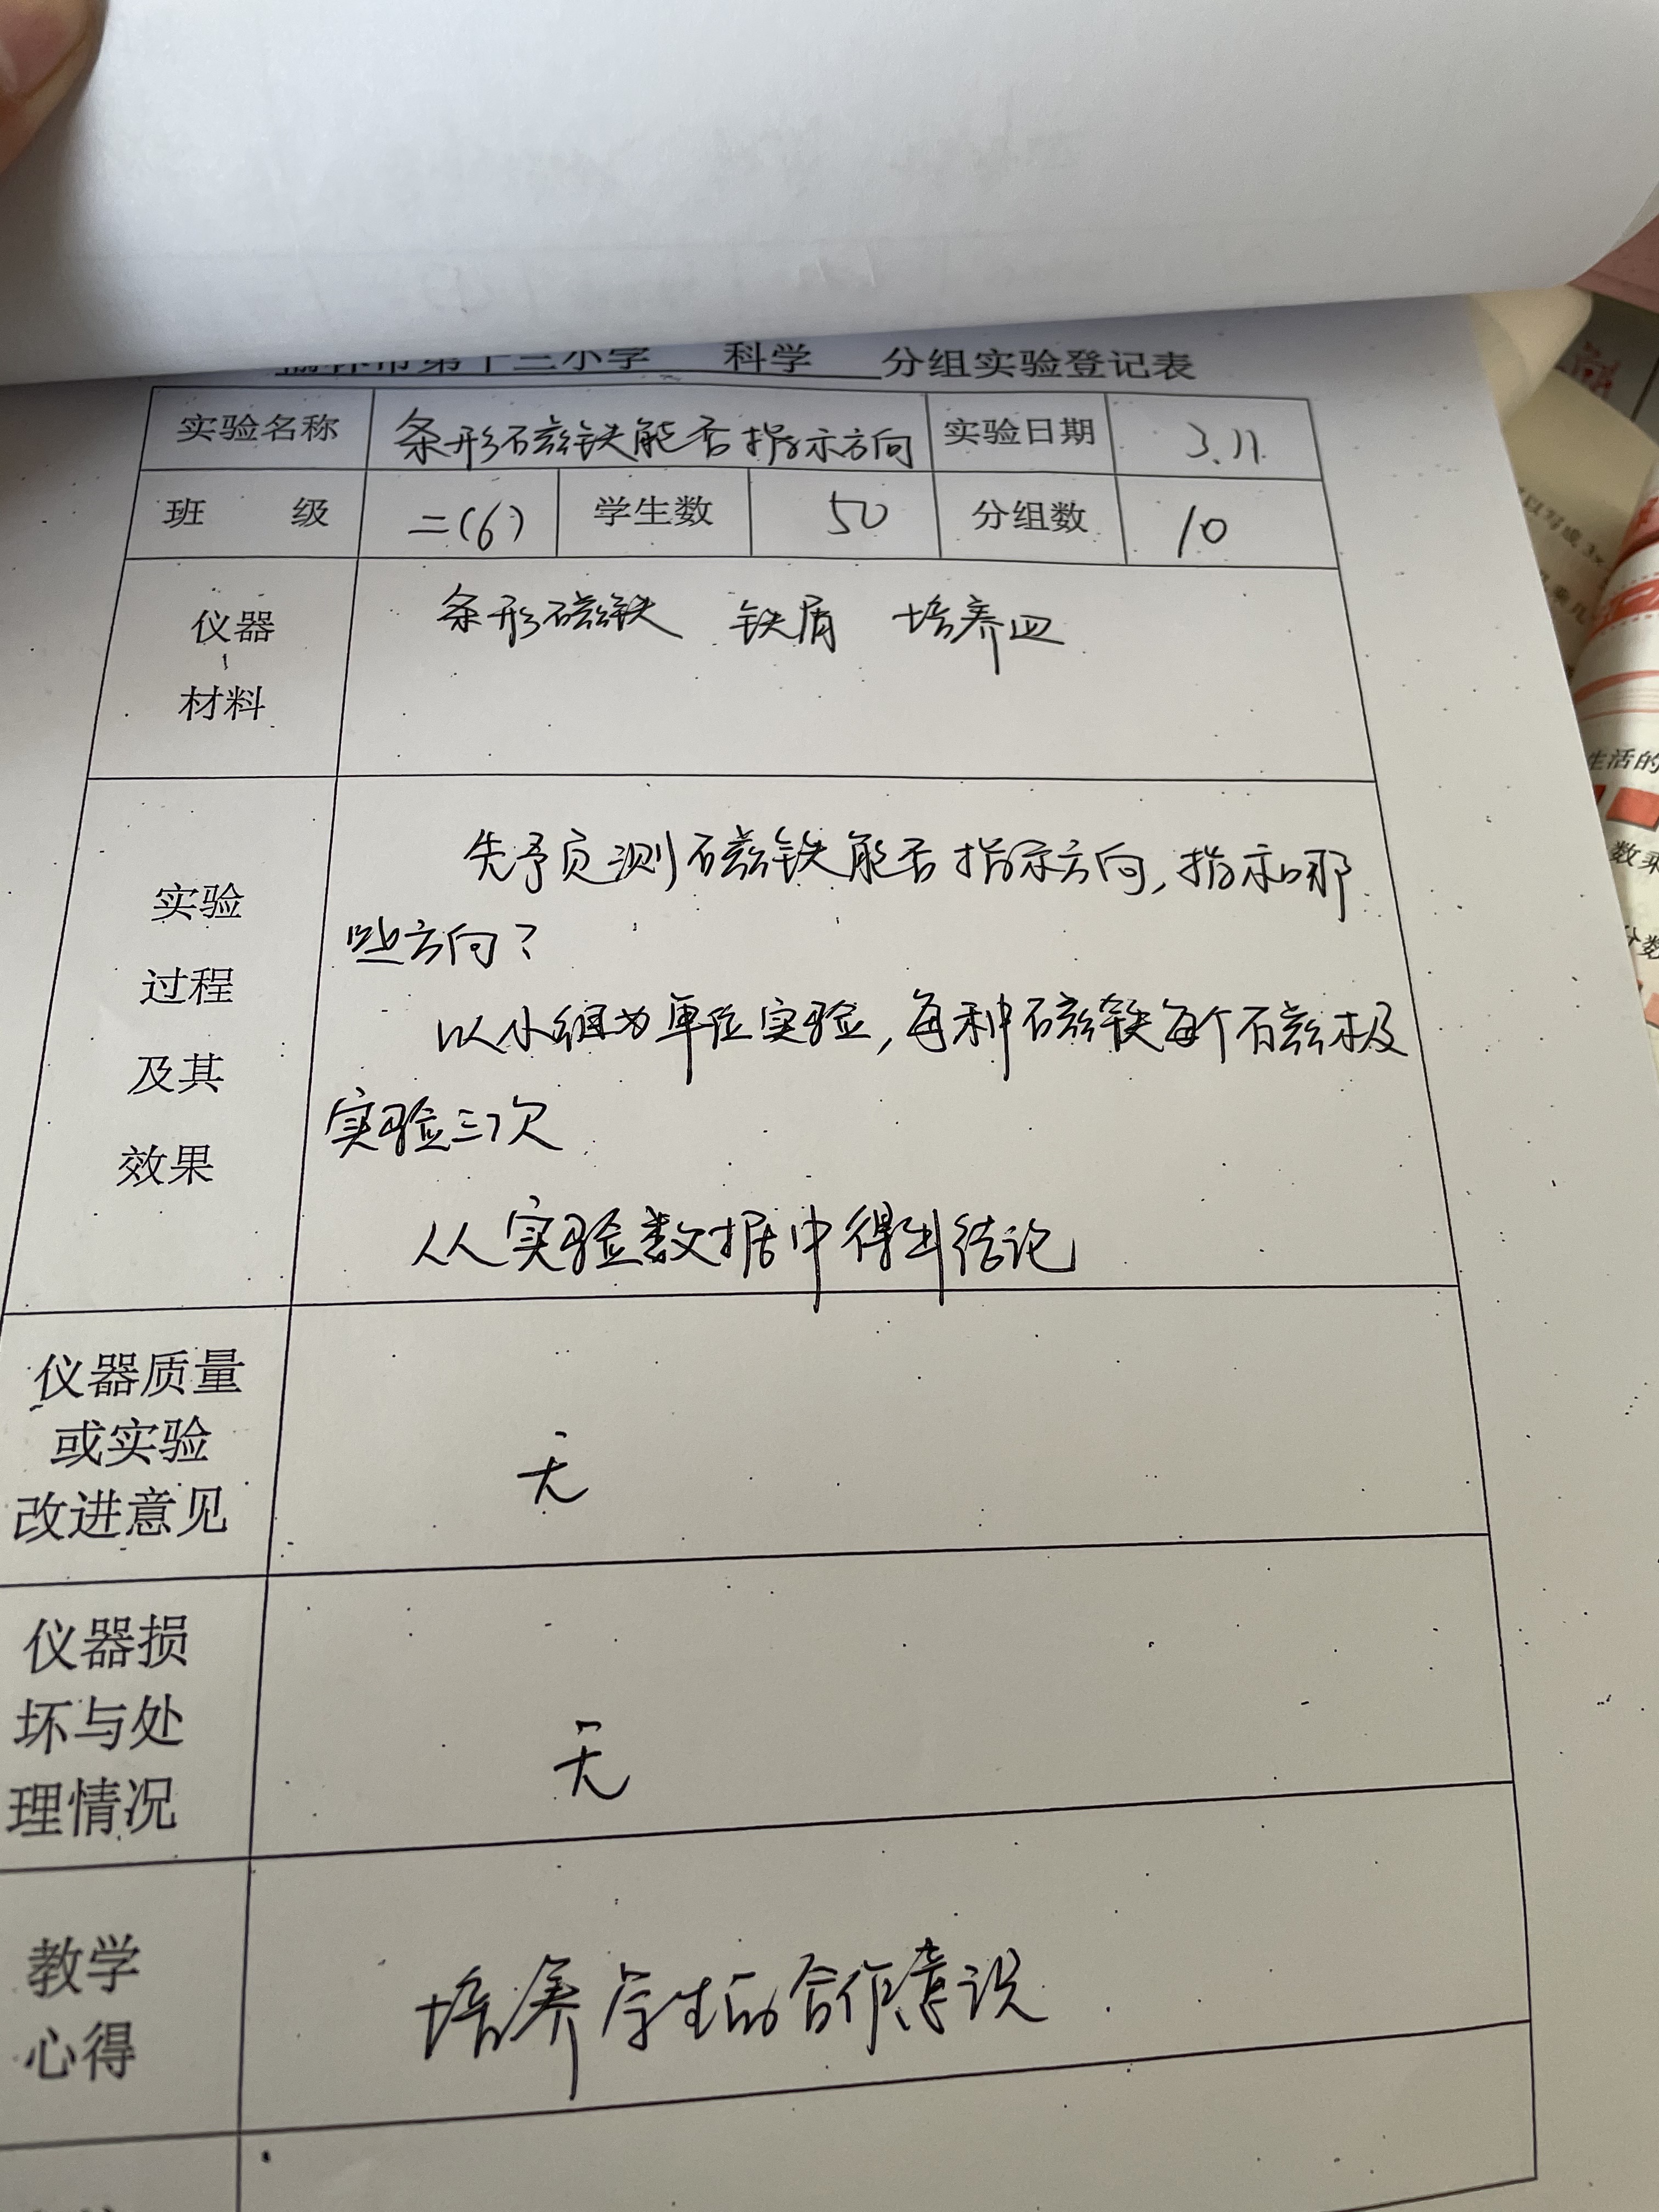 榆林市第十三小学 科学 分组实验登记表
实验名称 条形磁铁能否指示方向 实验日期 3.11
班 级 二(6) 学生数 50 分组数 10
仪器
材料
条形磁铁 铁屑 培养皿
实验
过程
及其
效果
先予页测磁铁能否指示方向,指示哪
些方向?
以小组为单位实验,每种磁铁每个磁极
实验三次
从实验数据中得出结论
仪器质量
或实验
改进意见
无
仪器损
坏与处
理情况
无
教学
心得
培养学生的合作意识
生活的
数乘
分数